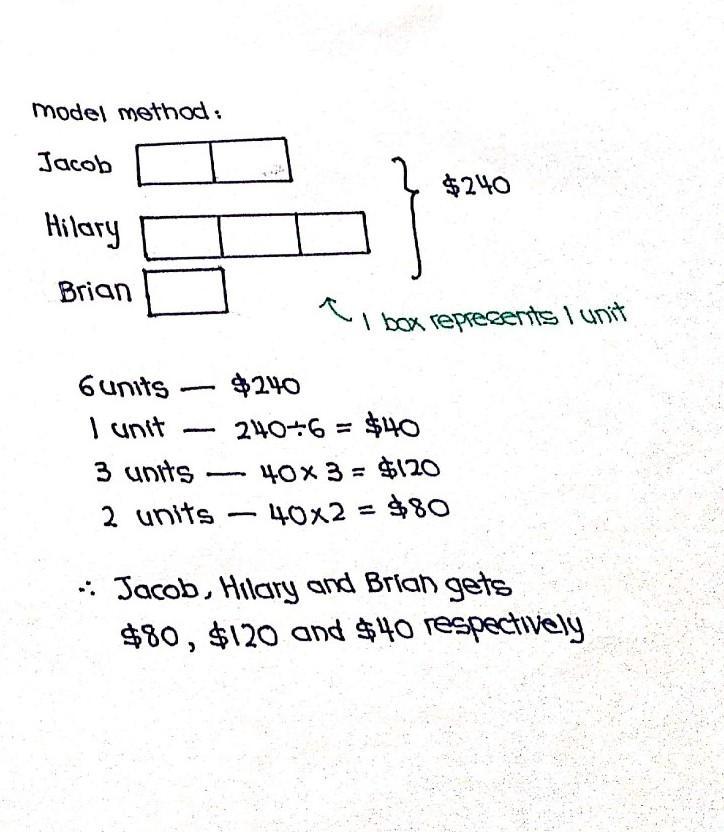 model method:
Jacob
$240
Hilary
Brian
1 box represents 1 unit
6 units — $240
1 unit — 240÷6 = $40
3 units — 40 x 3 = $120
2 units — 40x2 = $80
∴ Jacob, Hilary and Brian gets
$80, $120 and $40 respectively